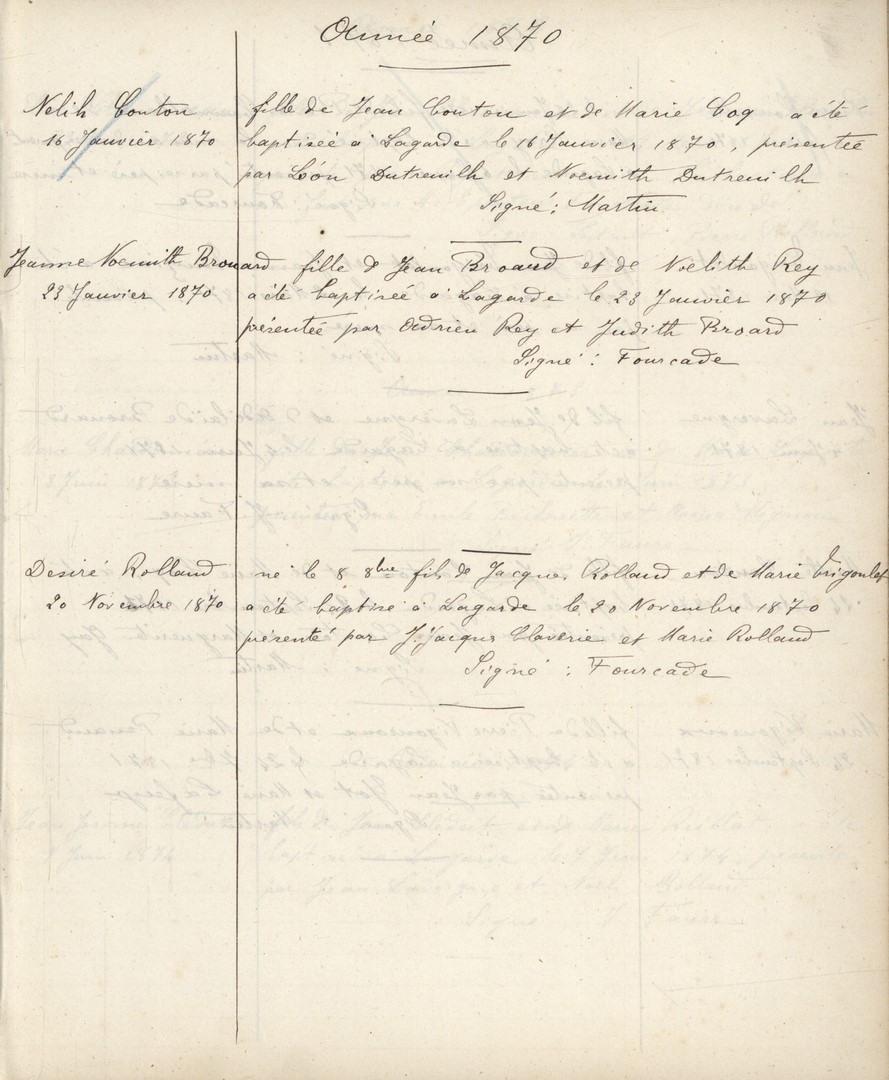 Année 1870
Nelih Couton fille de Jean Couton et de Marie Coq a été
16 Janvier 1870 baptisée à Lagarde le 16 Janvier 1870, présentée
par Léon Dutreuilh et Noemith Dutreuilh
Signé: Martin
Jeanne Noemith Brouard fille d Jean Broard et de Noélith Rey
23 Janvier 1870 a été baptisée à Lagarde le 23 Janvier 1870
présentée par Adrien Rey et Judith Broard
Signé: Fourcade
Desiré Rolland né le 8 8bre fils de Jacques Rolland et de Marie
20 Novembre 1870 a été baptisé à Lagarde le 20 Novembre 1870
présenté par J. Jacques Claverie et Marie Rolland
Signé: Fourcade